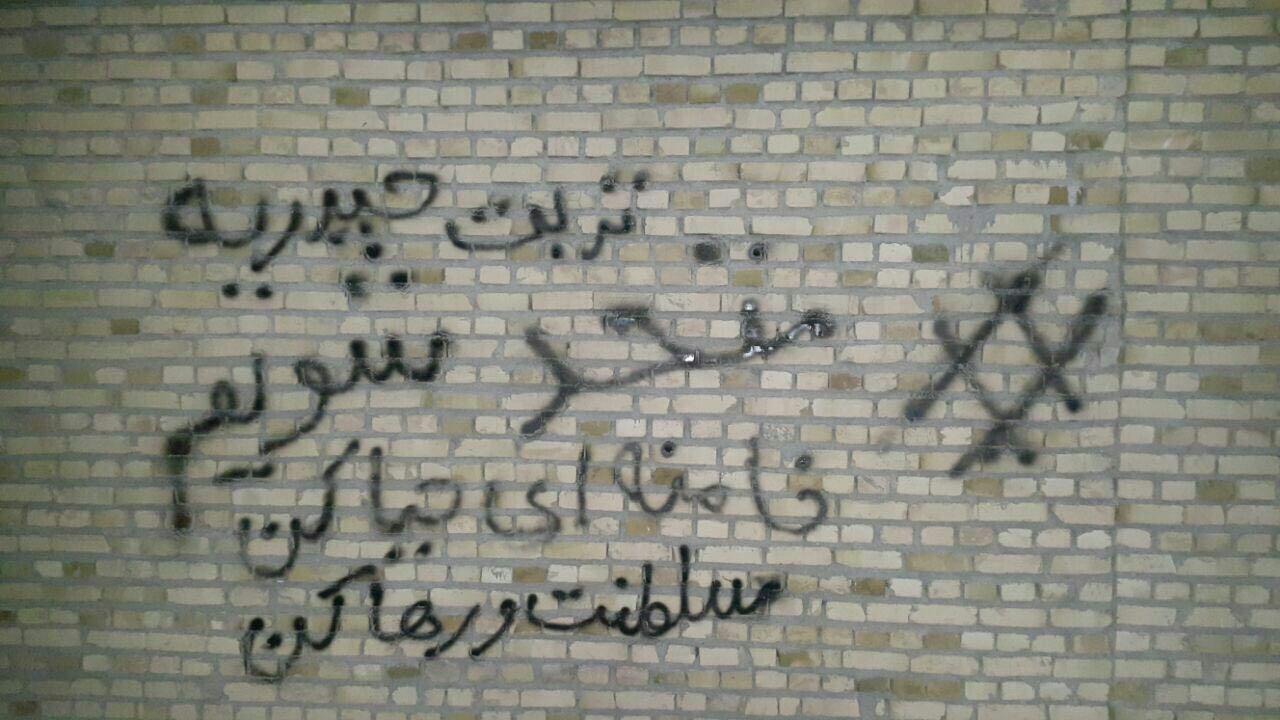 تربت حیدریه
متحد شویم
خامنه ای حیا کن
سلطنت و رها کن